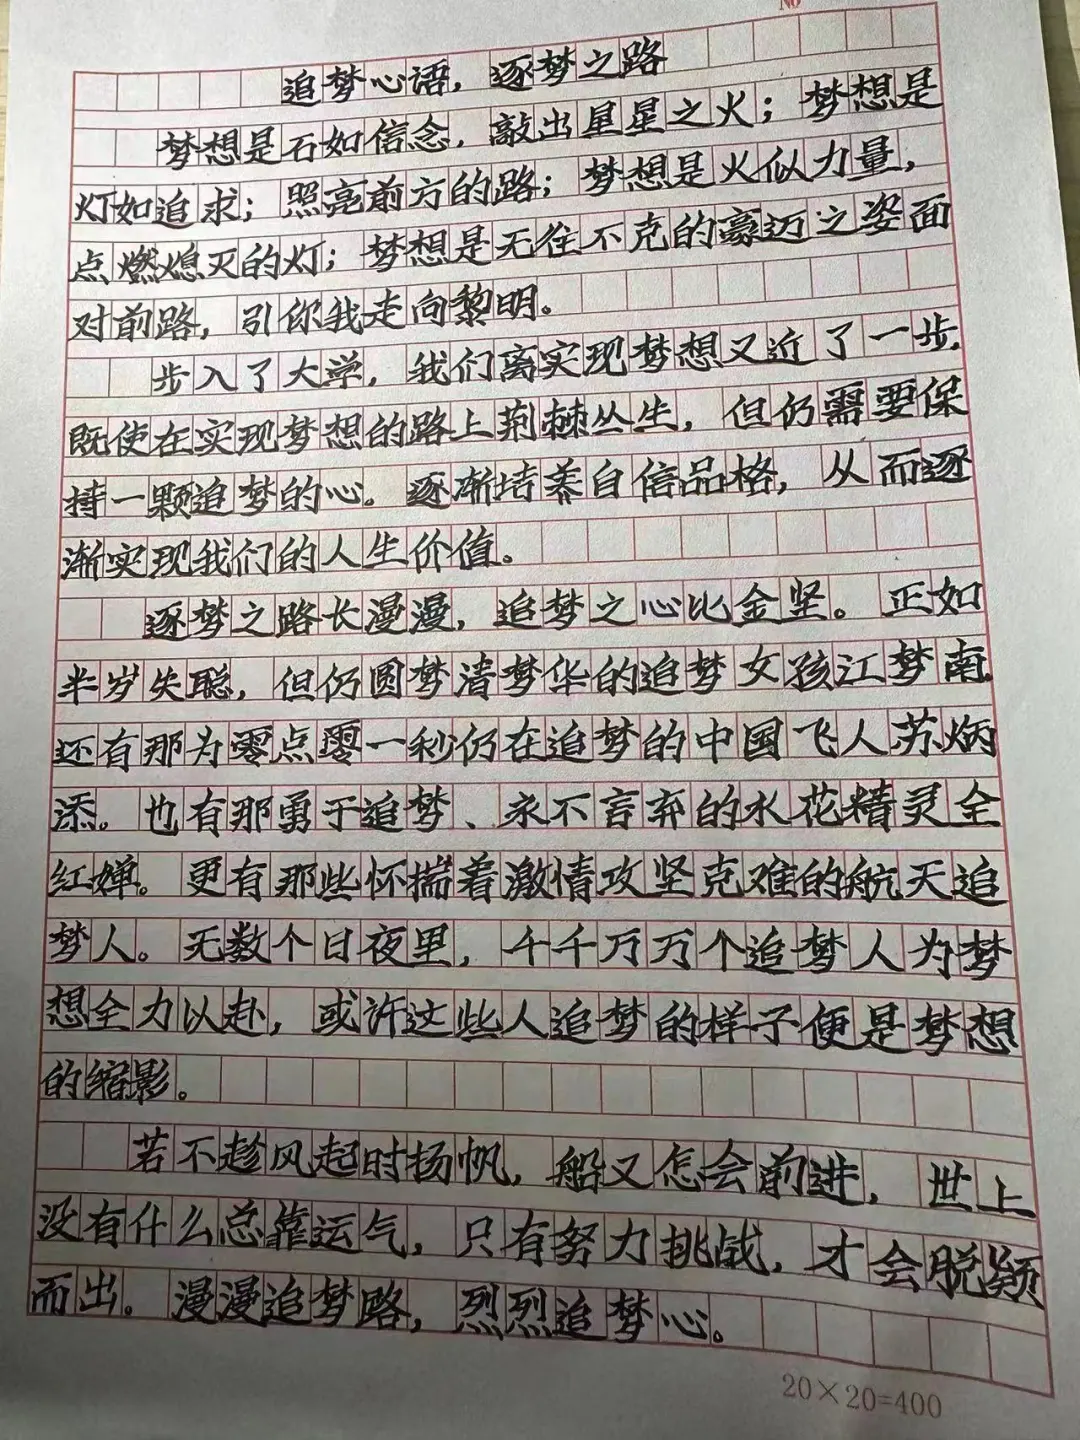 No
追梦心语，逐梦之路
梦想是石如信念，敲出星星之火；梦想是
灯如追求；照亮前方的路；梦想是火似力量，
点燃熄灭的灯；梦想是无往不克的豪迈之姿面
对前路，引你我走向黎明。
步入了大学，我们离实现梦想又近了一步.
既使在实现梦想的路上荆棘丛生，但仍需要保
持一颗追梦的心。逐渐培养自信品格，从而逐
渐实现我们的人生价值。
逐梦之路长漫漫，追梦之心比金坚。正如
半岁失聪，但仍圆梦清梦华的追梦女孩江梦南.
还有那为零点零一秒仍在追梦的中国飞人苏炳
添。也有那勇于追梦、永不言弃的水花精灵全
红婵。更有那些怀揣着激情攻坚克难的航天追
梦人。无数个日夜里，千千万万个追梦人为梦
想全力以赴，或许这些人追梦的样子便是梦想
的缩影。
若不趁风起时扬帆，船又怎会前进，世上
没有什么总靠运气，只有努力挑战，才会脱颖
而出。漫漫追梦路，烈烈追梦心。
20×20=400